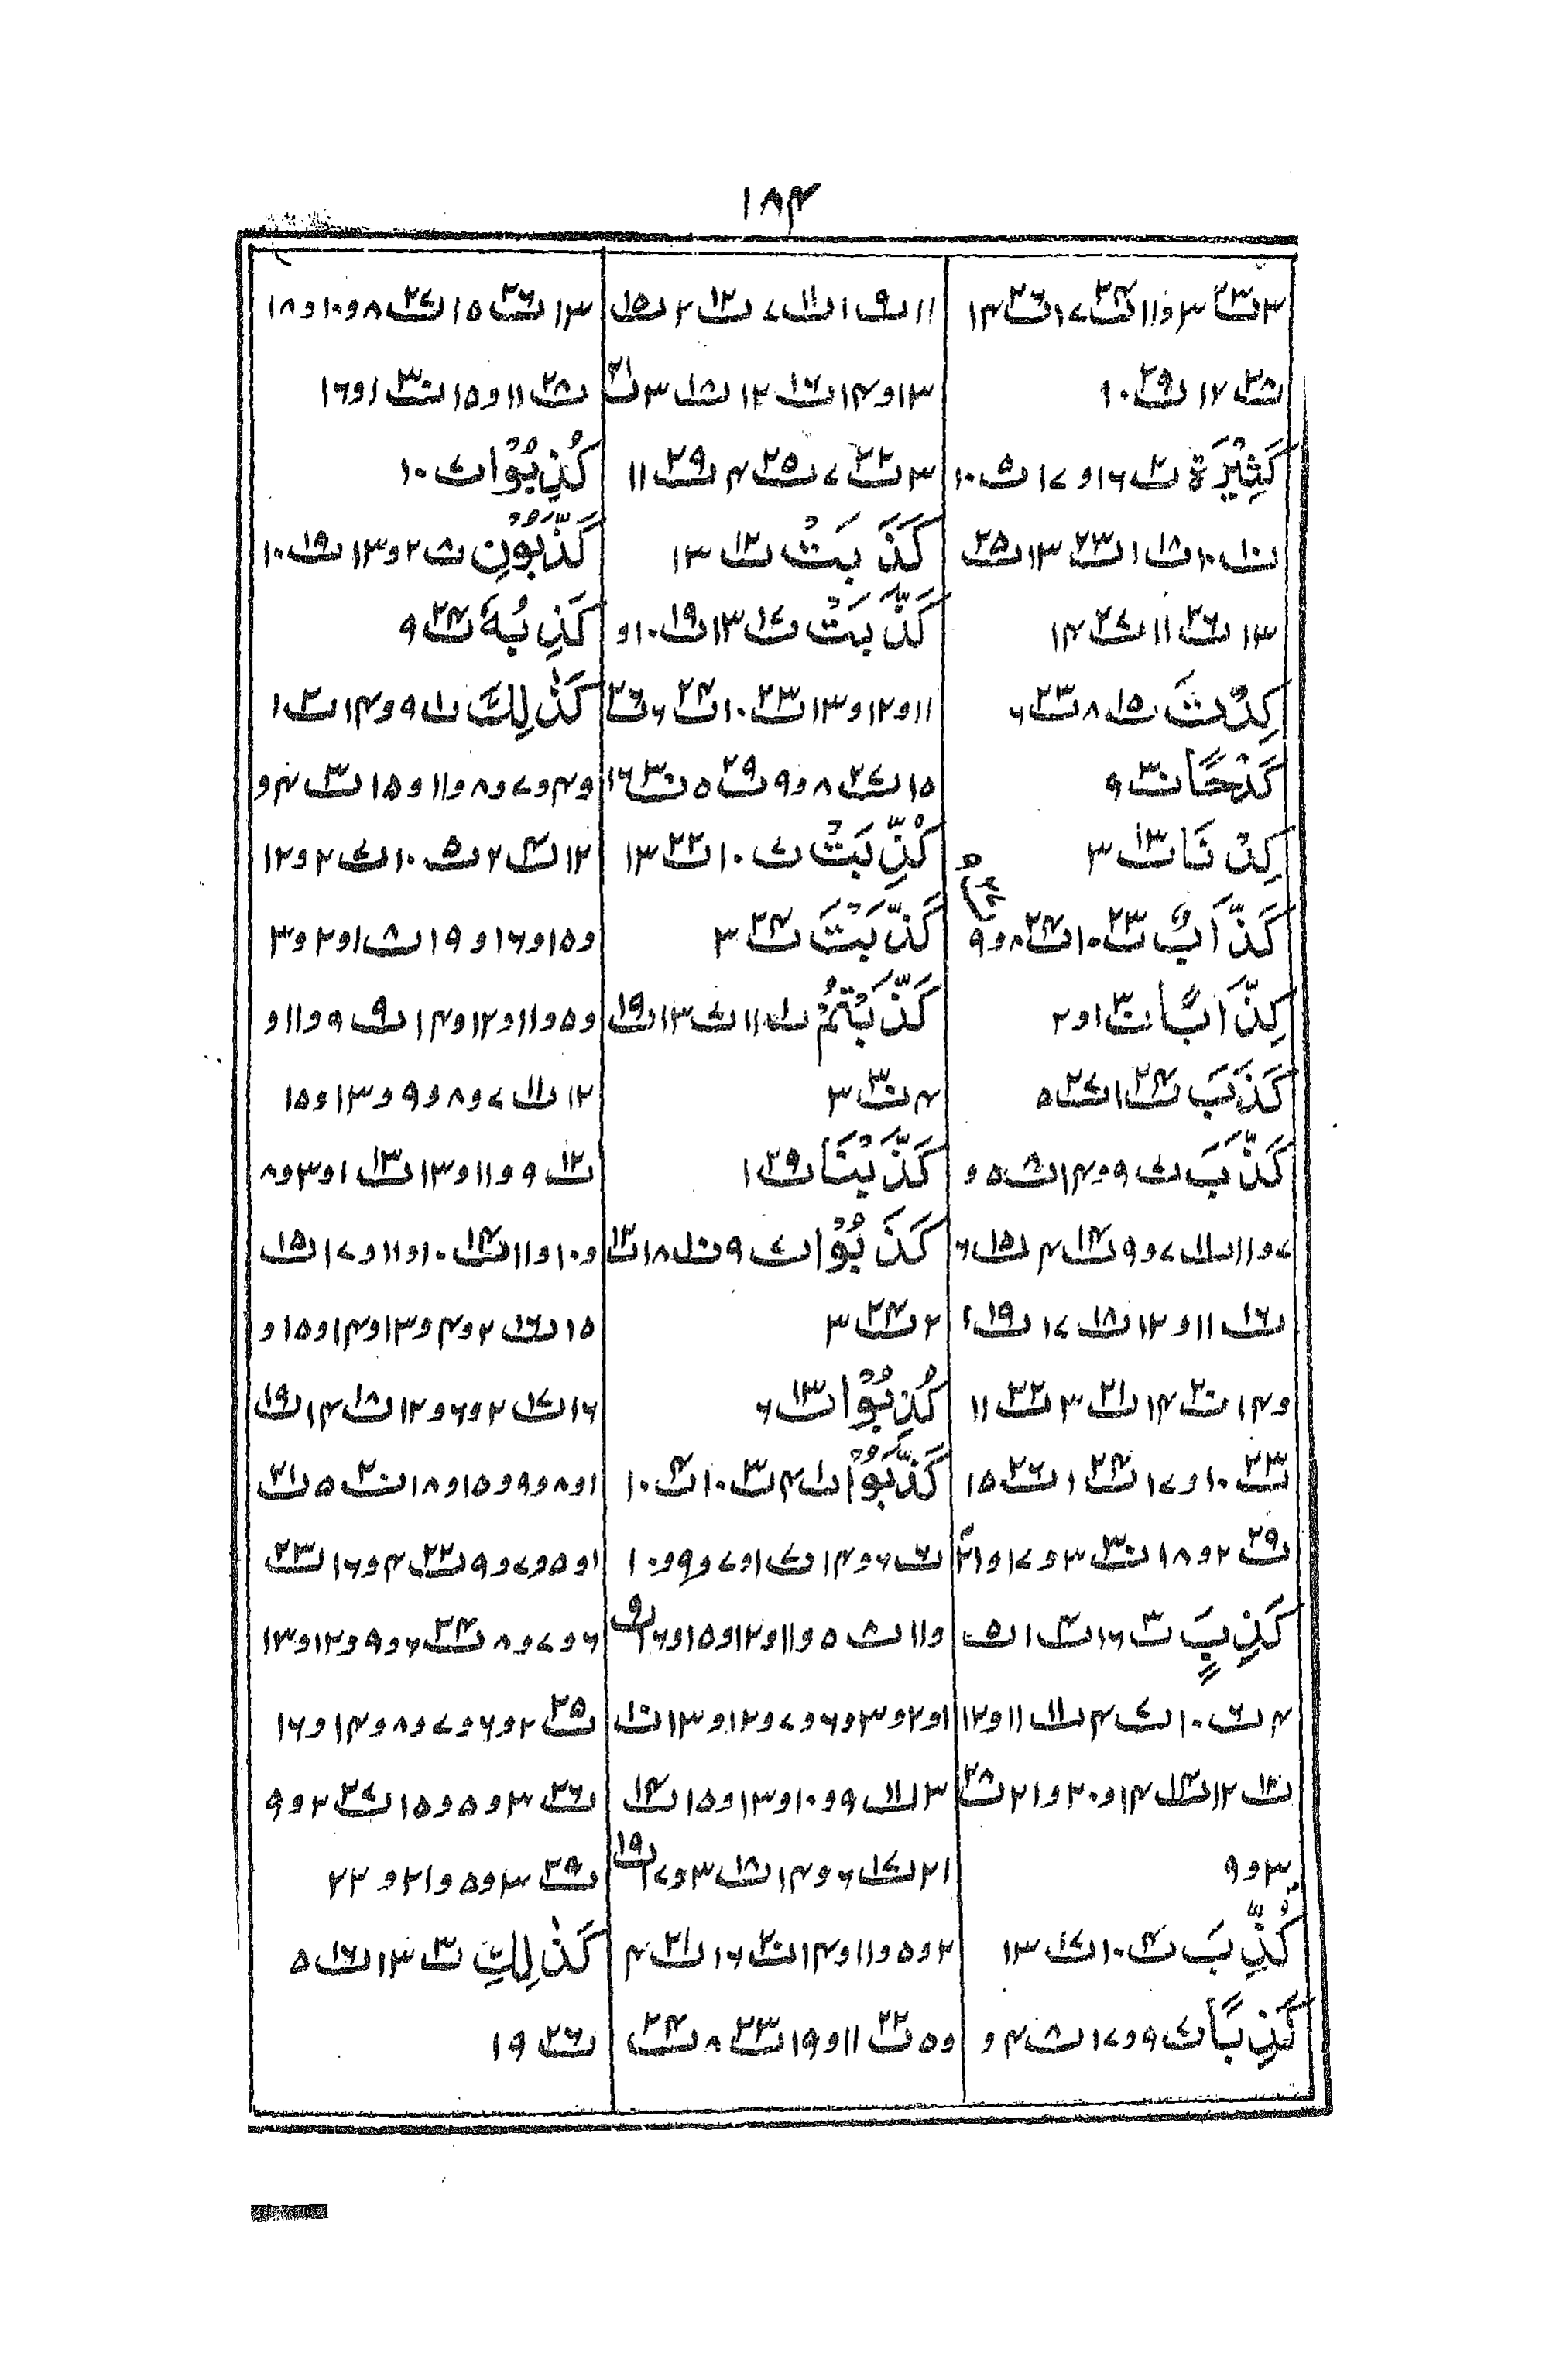 ۱۸۴
۳ ت۲۳ ۳ و ۱۱ ت۲۴ ۱۷ ت۲۶ ۱۴
ت۲۸ ۱۲ ت۲۹ ۱۰
كَثِيْرَةٌ ت۲ ۱۶ و ۱۷ ت۵ ۱۰
ت۱۰ ۱۰ ت۱۸ ۱ ت۲۳ ۱۳ ت۲۵
۱۳ ت۲۶ ۱۱ ت۲۷ ۱۴
كِدْتَّ ت۱۵ ۸ ت۲۳ ۶
كَدْحًا ت۳۰ ۹
كِدْنَا ت۱۳ ۳
كَذَّابٌ ت۲۳ ۱۰ ت۲۴ ۸ و ۹
كِذَّابًا ت۳۰ ۱ و ۲
كَذَبَ ت۲۴ ۱ ت۲۷ ۵
كَذَّبَ ت۷ ۹ و ۱۴ ت۸ ۵ و
۷ و ۱۱ ت۱۱ ۷ و ۹ ت۱۴ ۴ ت۱۵ ۶
ت۱۶ ۱۱ و ۱۲ ت۱۸ ۱۷ ت۱۹ ۱
و ۱۴ ت۲۰ ۱۴ ت۲۱ ۳ ت۲۲ ۱۱
ت۲۳ ۱۰ و ۱۷ ت۲۴ ۱ ت۲۶ ۱۵
ت۲۹ ۲ و ۱۸ ت۳۰ ۳ و ۱۷ و ۲۱
كَذِبٍ ت۳ ۱۶ ت۴ ۱ ت۵
۴ ت۶ ۱۰ ت۷ ۴ ت۱۱ ۱۱ و ۱۲
ت۱۲ ۱۲ ت۱۴ ۱۴ و ۲۰ و ۲۱ ت۲۸
۳ و ۹
كُذِّبَ ت۴ ۱۰ ت۱۷ ۱۳
كَذِبًا ت۷ ۹ و ۱۷ ت۸ ۴ و
۱۱ ت۹ ۱ ت۱۱ ۷ ت۱۲ ۲ ت۱۵
۱۳ و ۱۴ ت۱۶ ۱۲ ت۱۸ ۳ ت۲۱
۳ ت۲۲ ۷ ت۲۵ ۴ ت۲۹ ۱۱
كَذَبَتْ ت۱۲ ۱۳
كَذَّبَتْ ت۱۷ ۱۳ ت۱۹ ۱۰ و
۱۱ و ۱۲ و ۱۳ ت۲۳ ۱۰ ت۲۴ ۶ ت۲۶
۱۵ ت۲۷ ۸ و ۹ ت۲۹ ۵ ت۳۰ ۱۶
كُذِّبَتْ ت۷ ۱۰ ت۲۲ ۱۳
كَذَّبْتَ ت۲۴ ۳
كَذَّبْتُمْ ت۱ ۱۱ ت۷ ۱۳ ت۱۹
۴ ت۳۰ ۳
كَذَّبْنَا ت۲۹ ۱
كَذَبُوْا ت۷ ۹ ت۱۰ ۱۸ ت۱۳
۲ ت۲۴ ۳
كُذِبُوْا ت۱۳ ۶
كَذَّبُوْا ت۱ ۴ ت۳ ۱۰ ت۴ ۱۰
ت۶ ۶ و ۱۴ ت۷ ۱ و ۷ و ۹ و ۱۰
و ۱۱ ت۸ ۵ و ۱۱ و ۱۲ و ۱۵ و ۱۶ ت۹
۱ و ۲ و ۳ و ۶ و ۷ و ۱۲ و ۱۳ ت۱۰
۳ ت۱۱ ۹ و ۱۰ و ۱۳ و ۱۵ ت۱۴
۲۱ ت۱۷ ۶ و ۱۴ ت۱۸ ۳ و ۱۷ ت۱۹
۲ و ۵ و ۱۱ و ۱۴ ت۲۰ ۱۶ ت۲۱ ۴
و ۵ ت۲۲ ۱۱ و ۱۹ ت۲۳ ۸ ت۲۴
۱۳ ت۲۶ ۱۵ ت۲۷ ۸ و ۱۰ و ۱۸
ت۲۸ ۱۱ و ۱۵ ت۳۰ ۱ و ۱۶
كُذِبُوْا ت۷ ۱۰
كَذَّبُوْنِ ت۸ ۲ و ۱۳ ت۱۹ ۱۰
كَذِبُهٗ ت۲۴ ۹
كَذٰلِكَ ت۱ ۹ و ۱۴ ت۲ ۱
و ۴ و ۷ و ۸ و ۱۱ و ۱۵ ت۳ ۴ و
۱۲ ت۴ ۲ ت۵ ۱۰ ت۷ ۲ و ۱۲
و ۱۵ و ۱۶ و ۱۹ ت۸ ۱ و ۲ و ۳
و ۵ و ۱۱ و ۱۲ و ۱۴ ت۹ ۹ و ۱۱ و
۱۲ ت۱۱ ۷ و ۸ و ۹ و ۱۳ و ۱۵
ت۱۲ ۹ و ۱۱ و ۱۳ ت۱۳ ۱ و ۳ و ۸
و ۱۰ و ۱۱ ت۱۴ ۱۰ و ۱۱ و ۱۷ ت۱۵
۱۵ ت۱۶ ۲ و ۴ و ۱۳ و ۱۴ و ۱۵ و
۱۶ ت۱۷ ۲ و ۶ و ۱۲ ت۱۸ ۱۴ ت۱۹
۱ و ۸ و ۹ و ۱۵ و ۱۸ ت۲۰ ۵ ت۲۱
۱ و ۵ و ۷ و ۹ ت۲۲ ۴ و ۱۶ ت۲۳
۶ و ۷ و ۸ ت۲۴ ۶ و ۹ و ۱۲ و ۱۳
ت۲۵ ۲ و ۶ و ۷ و ۸ و ۱۴ و ۱۶
ت۲۶ ۳ و ۵ و ۱۵ ت۲۷ ۲ و ۹
ت۲۹ ۳ و ۵ و ۲۱ و ۲۲
كَذٰلِكِ ت۳ ۱۳ ت۱۶ ۵
ت۲۶ ۱۹